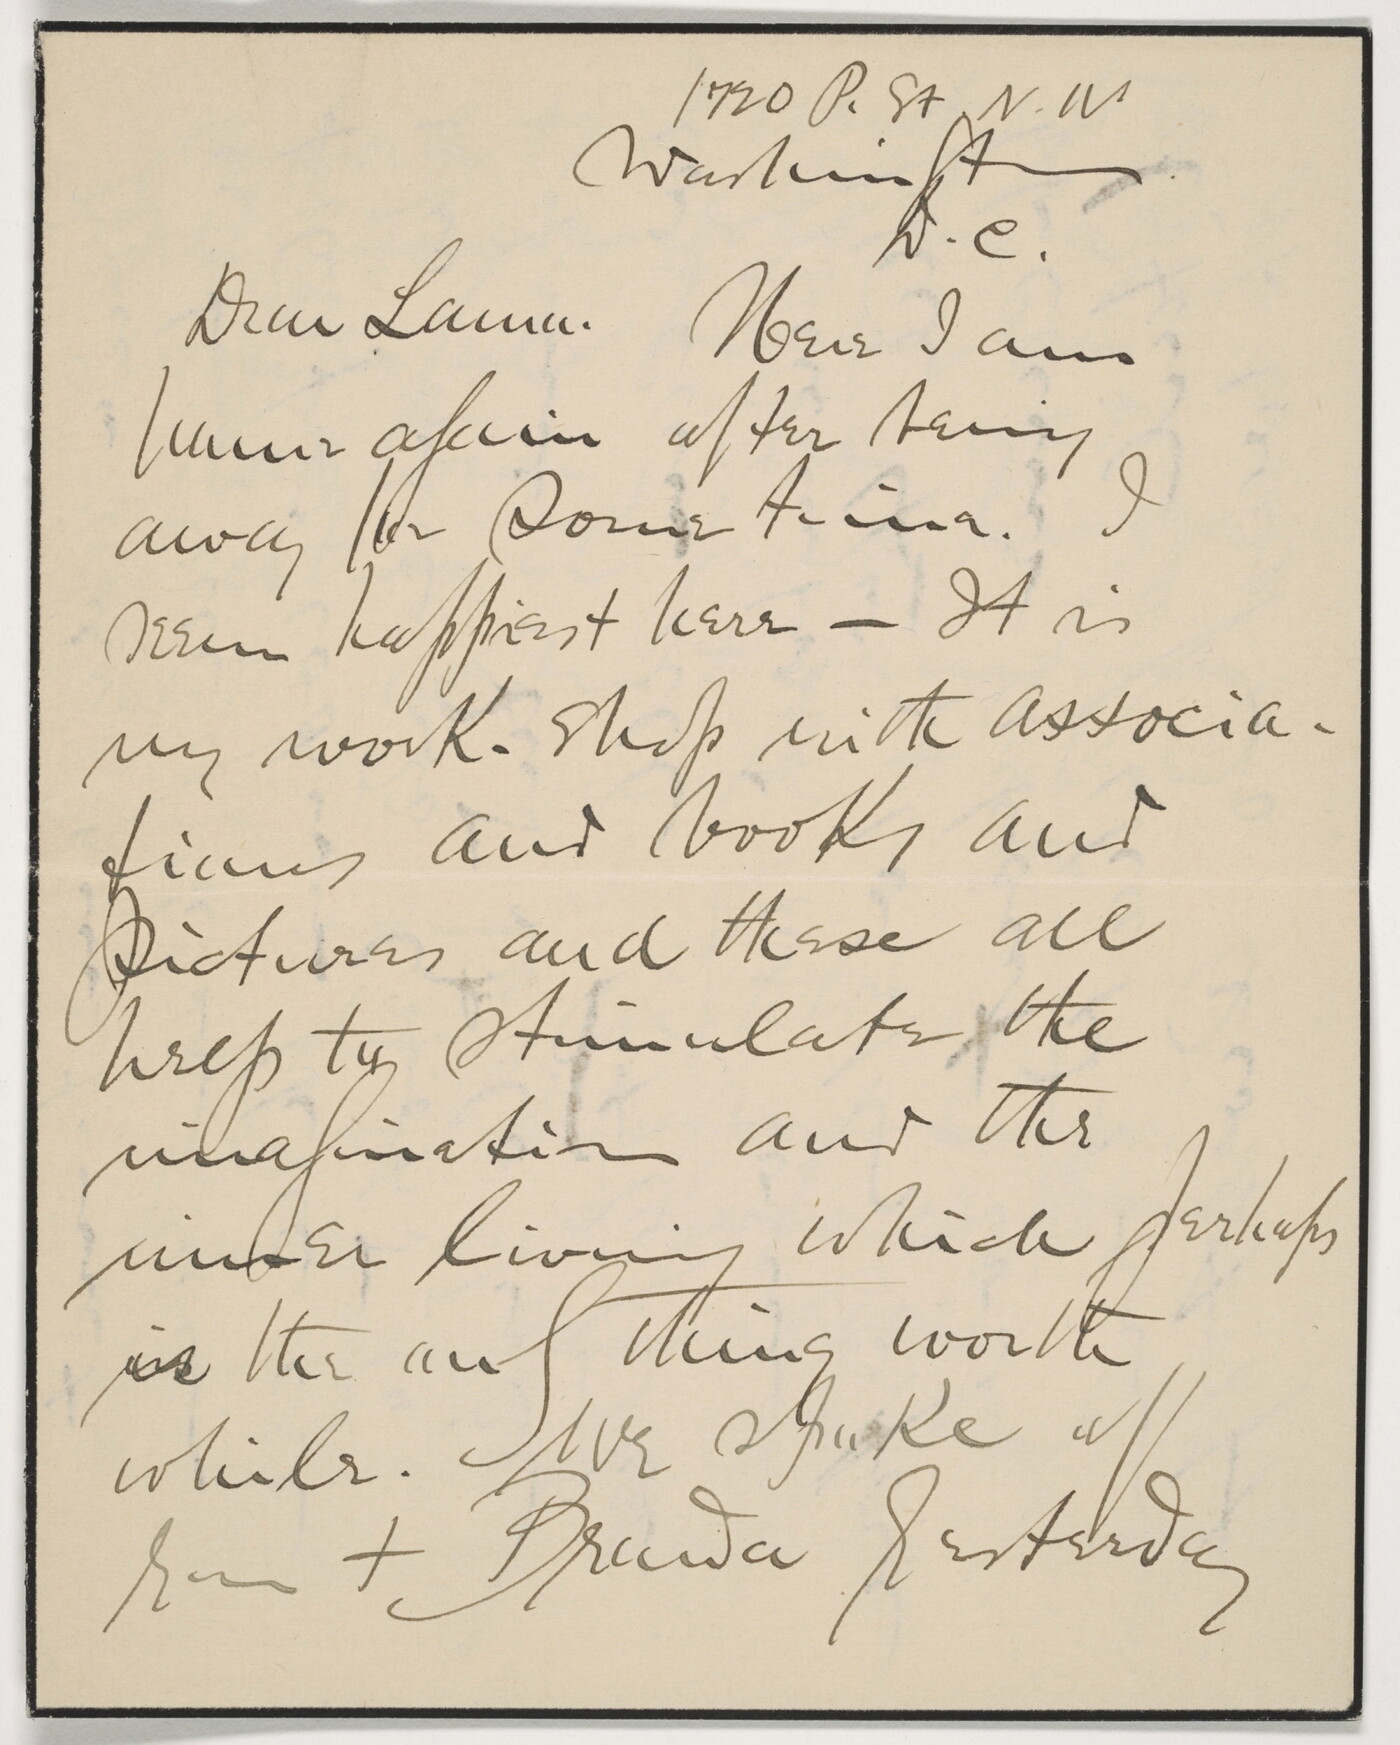 1720 P. St. N. W
Washington
D. C.
Dear Laura. Here I am
home again after being
away for some time. I
seem happiest here — It is
my work-shop with associa-
tions and books and
pictures and these all
help to stimulate the
imagination and the
inner living which perhaps
is the only thing worth
while. We spoke of
you + Brenda yesterday